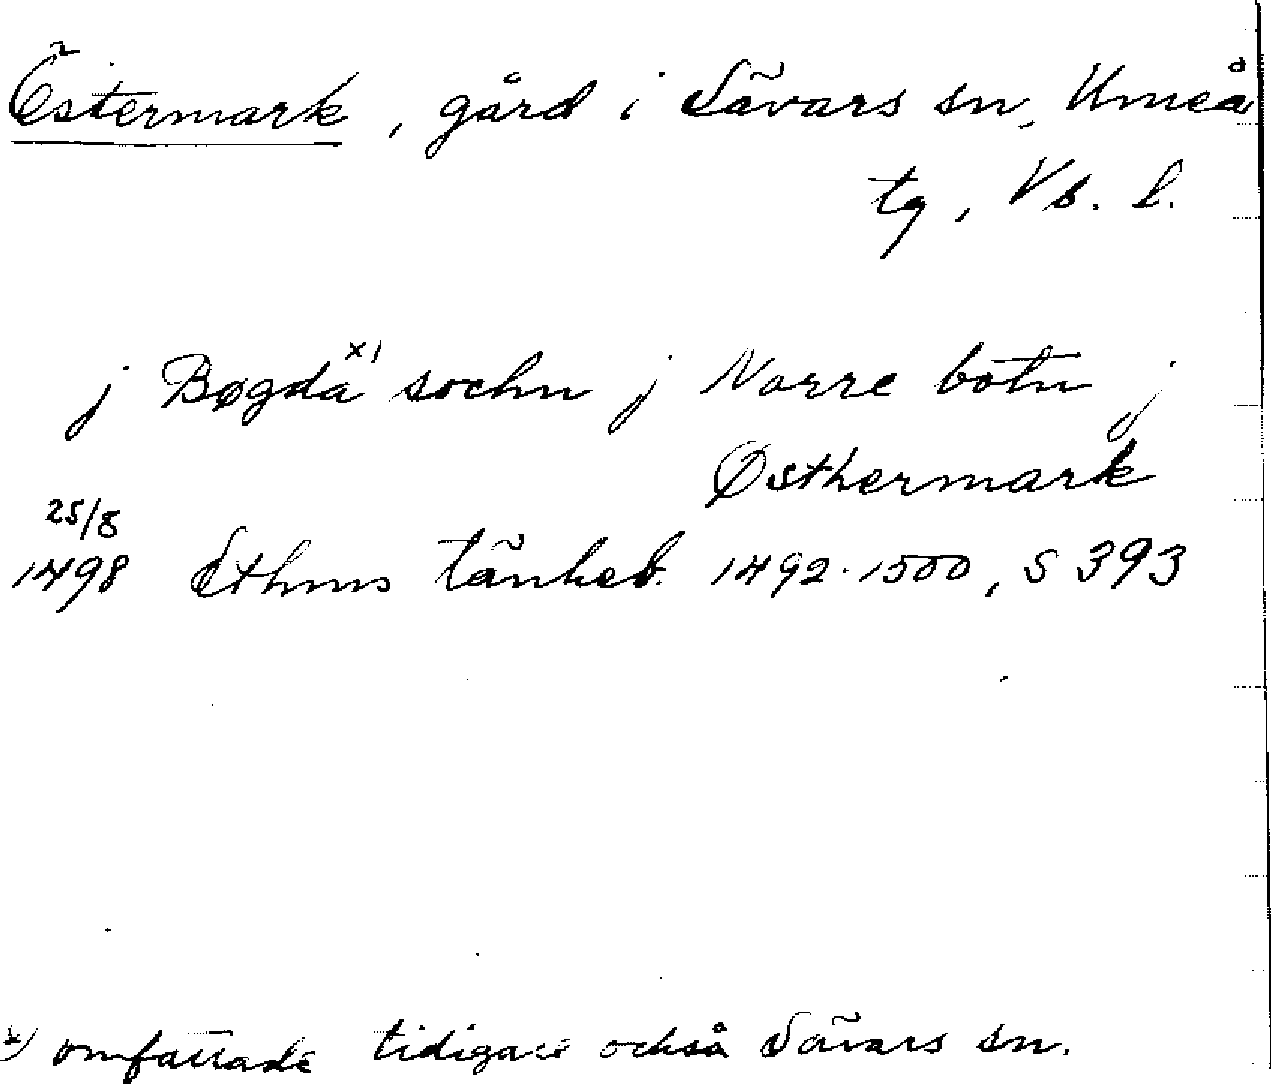 Östermark, gård i Sävars sn, Umeå
tg, Vb. l.
j Bøgdä x) sochn j Norre botn j
Østhermark
25/8
1498 Sthms tänkeb. 1492-1500, S 393
x) omfattade tidigare också Sävars sn.